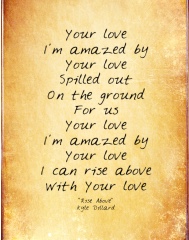 Your love
I'm amazed by
Your love
Spilled out
On the ground
For us
Your love
I'm amazed by
Your love
I can rise above
With Your love
"Rise Above"
Kyle Dillard